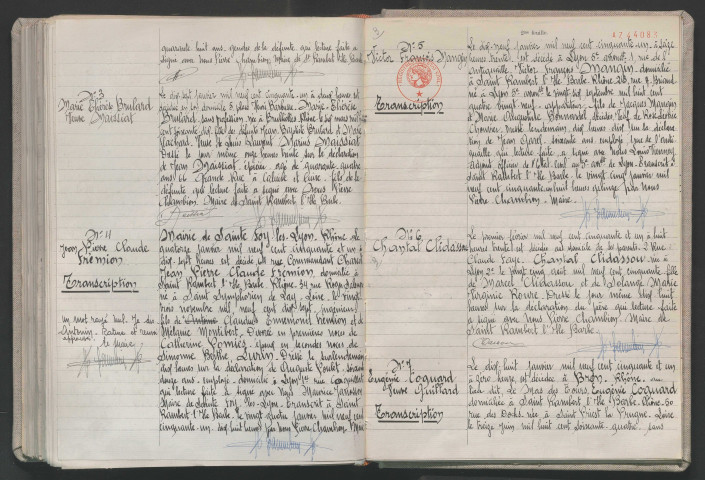 quarante huit ans, gendre de la défunte, qui lecture faite a
signé avec Nous Pierre Chambon, Maire de St Rambert l'Ile Barbe
N° 3
Marie Thérèse Brulard
Veuve Maissiat
Le dix-sept janvier mil neuf cent cinquante un à deux heures est
décédée en son domicile 3, place Henri Barbusse, Marie Thérèse
Brulard, sans profession, née à Brullioles, Rhône, le
cent soixante dix, fille des défunts Jean Baptiste Brulard et Marie
Vachard. Veuve de Jean Laurent Marius Maissiat
Dressé le jour même onze heures trente sur la déclaration
de Jean Maissiat, épicier, âgé de quarante quatre
ans, 66 Grande Rue à Caluire et Cuire, fils de la
défunte qui lecture faite a signé avec Nous Pierre
Chambon, Maire de Saint Rambert l'Ile Barbe.
N° 4
Jean Pierre Claude
Fremion
Transcription
un mot rayé nul. Je dis
Antonin. Rature et renvoi
approuvé.
Le Maire,
Mairie de Sainte Foy-les-Lyon. Rhône. Le
quatorze janvier mil neuf cent cinquante et un à
dix sept heures est décédé rue Commandant Charcot
Jean Pierre Claude Fremion, domicilié à
Saint Rambert l'Ile Barbe Rhône, 34 rue
né à Saint Symphorien de Lay, Loire, le vingt
trois novembre mil neuf cent dix sept, ingénieur,
fils de Antoine Claudius Fremion et de
Mélanie Montibert. Divorcé en premières noces de
Catherine Comiés. Epoux en secondes noces de
Simonne Berthe Lurin. Dressé le lendemain
dix heures sur la déclaration de Auguste Voutet, soixante
douze ans, employé, domicilié à Lyon,
qui lecture faite a signé avec Nous Maurice
Maire de Sainte Foy-les-Lyon. Transcrit à Saint
Rambert l'Ile Barbe. Le vingt quatre janvier mil neuf cent
cinquante-un dix huit heures par Nous Pierre Chambon, Maire
3
2me feuille
AZ 44083
N° 5
Victor François Mangin
Transcription
Le dix-neuf janvier mil neuf cent cinquante un à seize
heures trente est décédé à Lyon 5e arrondt 1, rue de
l'Antiquaille Victor François Mangin, domicilié
à Saint Rambert l'Ile Barbe Rhône 213, rue
né à Lyon 5e arrondt le vingt six septembre mil huit cent
quatre vingt neuf, apprêteur, fils de Jacques Mangin
et Marie Augustine Bonnardel, décédés,
Dressé le lendemain, dix heures dix sur la déclara-
tion de Jean Gavot, soixante ans, employé, 1 rue de l'Anti-
quaille qui lecture faite a signé avec Nous Louis
Adjoint officier de l'état civil du 5e arrdt de Lyon. Transcrit à
Saint Rambert l'Ile Barbe, le vingt cinq janvier mil
neuf cent cinquante un huit heures quinze par Nous
Pierre Chambon, Maire.
N° 6
Chantal Clidassou
Le premier février mil neuf cent cinquante et un à huit
heures trente est décédée au domicile de ses parents, 2 Rue
Claude Faye, Chantal Clidassou, née à
Lyon 2e le vingt cinq août mil neuf cent cinquante, fille
de Marcel Clidassou et de Solange Marie
Virginie Rouvre. Dressé le jour même dix huit
heures sur la déclaration du père qui lecture faite
a signé avec Nous Pierre Chambon, Maire de
Saint Rambert l'Ile Barbe.
N° 7
Eugénie Coquard
Veuve Guilliard
Transcription
Le dix huit janvier mil neuf cent cinquante et un
à zéro heure, est décédée à Bron, Rhône, au
lieu dit, Le Mas des Tours, Eugénie Coquard
domiciliée à Saint Rambert l'Ile Barbe Rhône 50
rue des Docks, née à Saint Priest la Prugne, Loire
le treize juin mil huit cent soixante quatre, sans